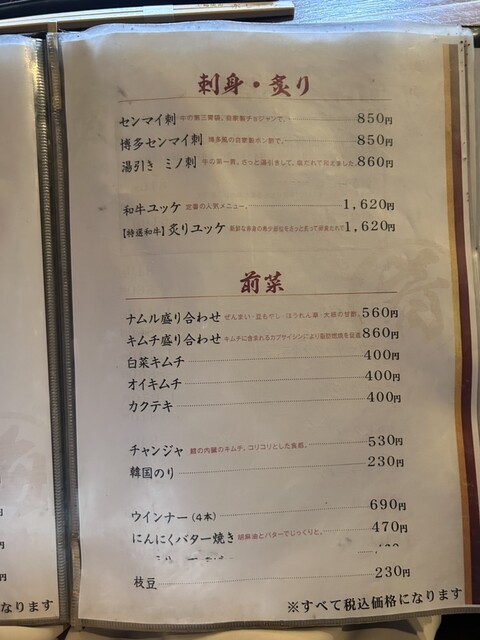 刺身・炙り
センマイ刺 牛の第三胃袋。自家製チョジャンで。 850円
博多センマイ刺 博多風の自家製ポン酢で。 850円
湯引き ミノ刺 牛の第一胃。さっと湯引きして、塩だれで和えました。 860円
和牛ユッケ 定番の人気メニュー。 1,620円
【特選和牛】炙りユッケ 1,620円
前菜
ナムル盛り合わせ ぜんまい・豆もやし・ほうれん草・大根の甘酢。 560円
キムチ盛り合わせ キムチに含まれるカプサイシンにより脂肪燃焼を促進 860円
白菜キムチ 400円
オイキムチ 400円
カクテキ 400円
チャンジャ 鱈の内臓のキムチ。コリコリとした食感。 530円
韓国のり 230円
ウインナー(4本) 690円
にんにくバター焼き 胡麻油とバターでじっくりと。 470円
枝豆 230円
※すべて税込価格になります
円
円
円
になります